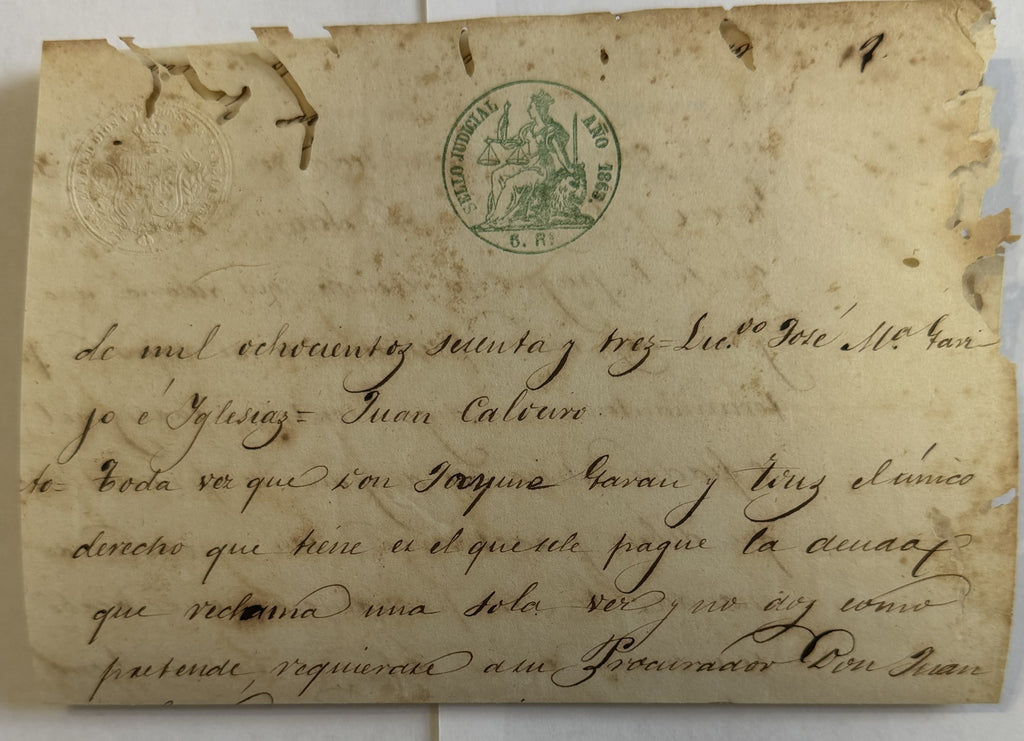 SELLO JUDICIAL AÑO 1863.
6. Rs
de mil ochocientos sesenta y trez=Lic.do José Ma. Gari
jo é Yglesiaz= Juan Caloeiro.
to= Toda vez que Don Joaquin Garau y el único
derecho que tiene es el que sele pague la deuda
que reclama una sola vez y no doz como
pretende, requierase a su Procurador Don Juan